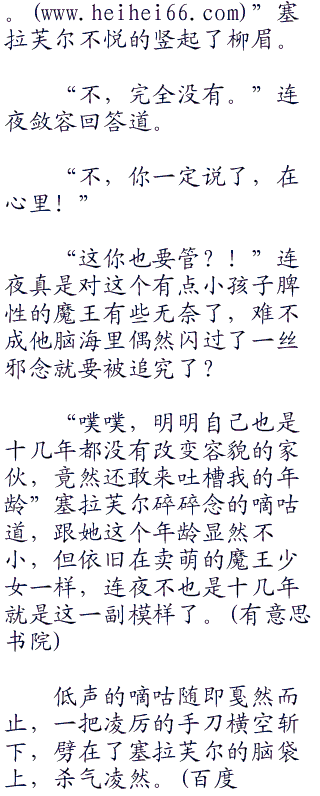 。(www.heihei66.com)”塞
拉芙尔不悦的竖起了柳眉。
“不，完全没有。”连
夜敛容回答道。
“不，你一定说了，在
心里！”
“这你也要管？！”连
夜真是对这个有点小孩子脾
性的魔王有些无奈了，难不
成他脑海里偶然闪过了一丝
邪念就要被追究了？
“噗噗，明明自己也是
十几年都没有改变容貌的家
伙，竟然还敢来吐槽我的年
龄”塞拉芙尔碎碎念的嘀咕
道，跟她这个年龄显然不
小，但依旧在卖萌的魔王少
女一样，连夜不也是十几年
就是这一副模样了。(有意思
书院)
低声的嘀咕随即戛然而
止，一把凌厉的手刀横空斩
下，劈在了塞拉芙尔的脑袋
上，杀气凌然。(百度